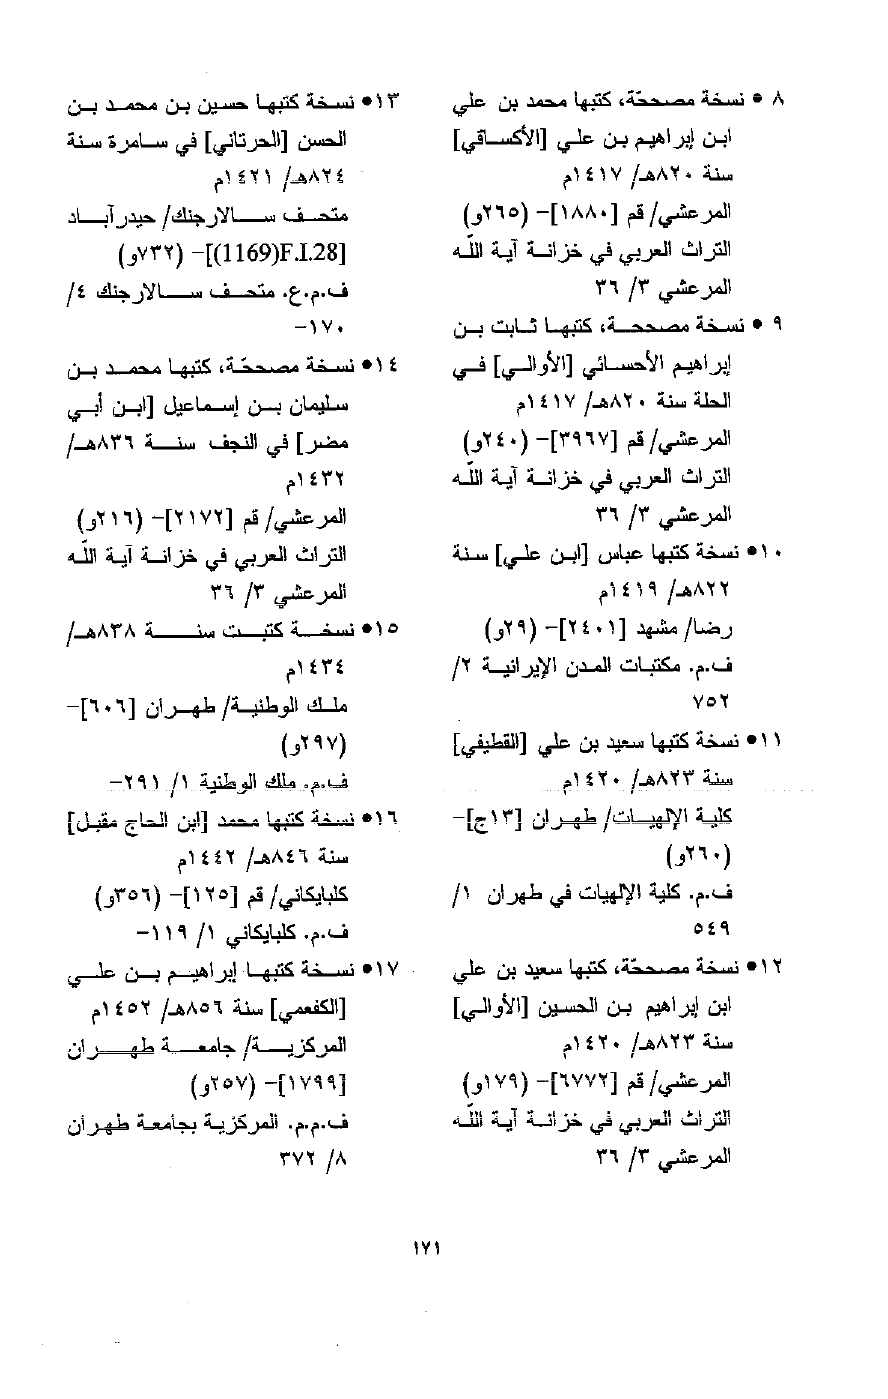 ٨ • نسخة مصححّة، كتبها محمد بن علي
ابن إبراهيم بن علي [الأكساقي]
سنة ٨٢٠هـ/ ١٤١٧م
المرعشي/ قم [١٨٨٠]– (٢٦٥و)
التراث العربي في خزانة آية اللّه
المرعشي ٣/ ٣٦
٩ • نسخة مصححة، كتبها ثابت بن
إبراهيم الأحسائي [الأوالي] في
الحلة سنة ٨٢٠هـ/ ١٤١٧م
المرعشي/ قم [٣٩٦٧]– (٢٤٠و)
التراث العربي في خزانة آية اللّه
المرعشي ٣/ ٣٦
١٠• نسخة كتبها عباس [ابن علي] سنة
٨٢٢هـ/ ١٤١٩م
رضا/ مشهد [٢٤٠١]– (٢٩و)
ف.م. مكتبات المدن الإيرانية ٢/
٧٥٢
١١• نسخة كتبها سعيد بن علي [القطيفي]
سنة ٨٢٣هـ/ ١٤٢٠م
كلية الإلهيات/ طهران [١٣ج]–
(٢٦٠و)
ف.م. كلية الإلهيات في طهران ١/
٥٤٩
١٢• نسخة مصححّة، كتبها سعيد بن علي
ابن إبراهيم بن الحسين [الأوالي]
سنة ٨٢٣هـ/ ١٤٢٠م
المرعشي/ قم [٦٧٧٢]– (١٧٩و)
التراث العربي في خزانة آية اللّه
المرعشي ٣/ ٣٦
١٣• نسخة كتبها حسين بن محمد بن
الحسن [الحرتاني] في سامرة سنة
٨٢٤هـ/ ١٤٢١م
متحف سالارجنك/ حيدرآباد
[F.I.28(1169)]– (٧٣٢و)
ف.م.ع. متحف سالارجنك ٤/
١٧٠–
١٤• نسخة مصححّة، كتبها محمد بن
سليمان بن إسماعيل [ابن أبي
مضر] في النجف سنة ٨٣٦هـ/
١٤٣٢م
المرعشي/ قم [٢١٧٢]– (٢١٦و)
التراث العربي في خزانة آية اللّه
المرعشي ٣/ ٣٦
١٥• نسخة كتبت سنة ٨٣٨هـ/
١٤٣٤م
ملك الوطنية/ طهران [٦٠٦]–
(٢٩٧و)
ف.م. ملك الوطنية ١/ ٢٩١–
١٦• نسخة كتبها محمد [ابن الحاج مقبل]
سنة ٨٤٦هـ/ ١٤٤٢م
كلبايكاني/ قم [١٢٥]– (٣٥٦و)
ف.م. كلبايكاني ١/ ١١٩–
١٧• نسخة كتبها إبراهيم بن علي
[الكفعمي] سنة ٨٥٦هـ/ ١٤٥٢م
المركزية/ جامعة طهران
[١٧٩٩]– (٢٥٧و)
ف.م.م. المركزية بجامعة طهران
٨/ ٣٧٢
١٧١